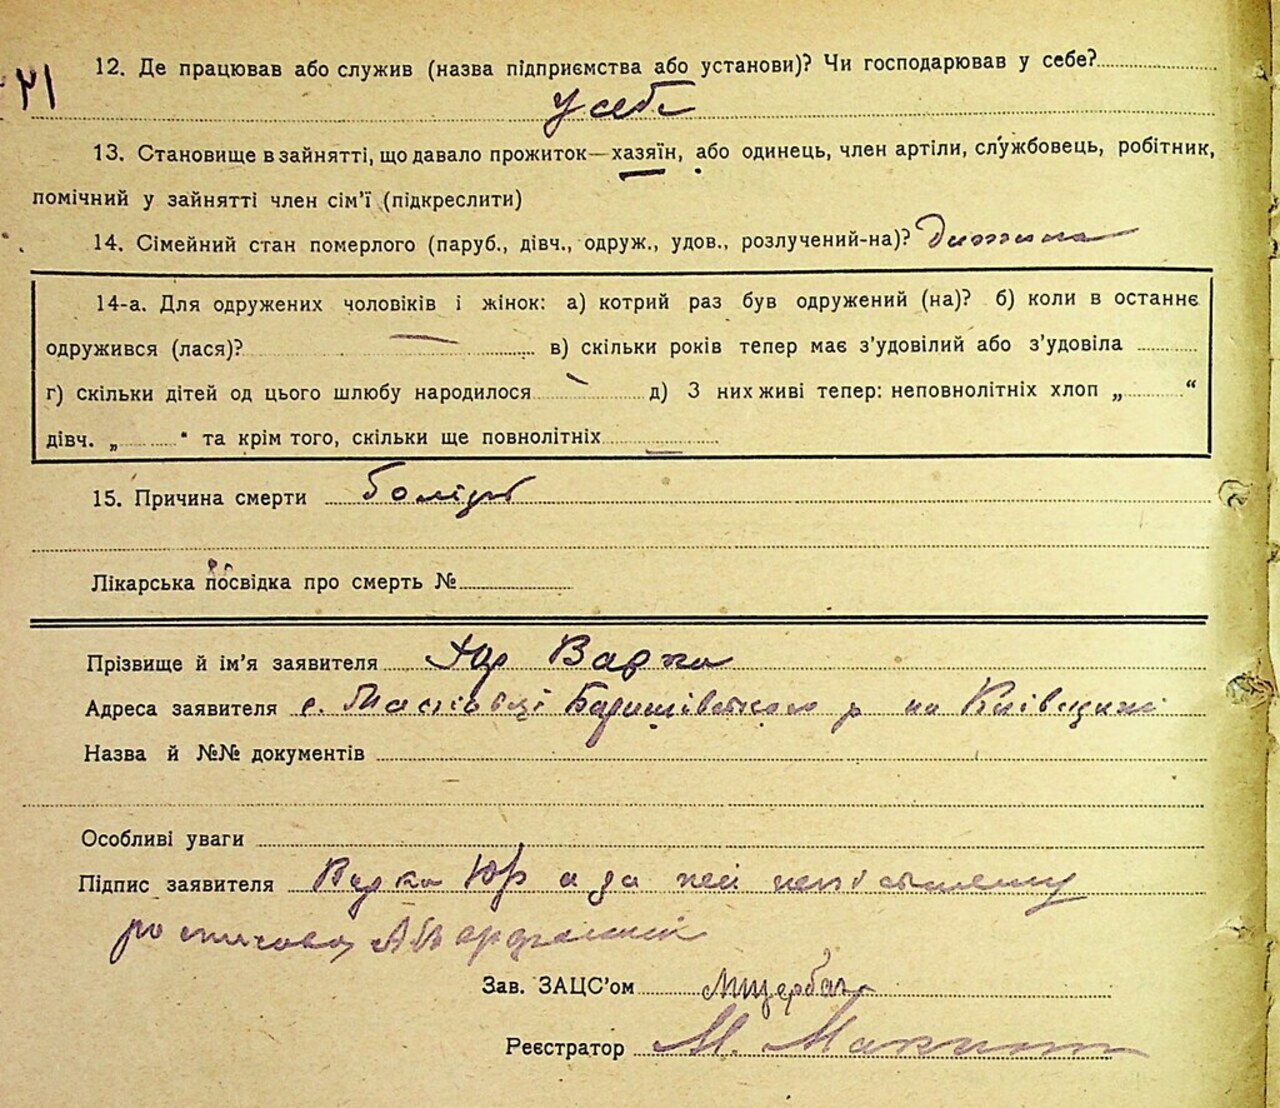 12. Де працював або служив (назва підприємства або установи)? Чи господарював у себе?
у себе
13. Становище в зайнятті, що давало прожиток—хазяїн, або одинець, член артіли, службовець, робітник,
помічний у зайнятті член сім'ї (підкреслити)
14. Сімейний стан померлого (паруб., дівч., одруж., удов., розлучений-на)? дитина
14-а. Для одружених чоловіків і жінок: а) котрий раз був одружений (на)? б) коли в останнє
одружився (лася)? — в) скільки років тепер має з'удовілий або з'удовіла
г) скільки дітей од цього шлюбу народилося д) З них живі тепер: неповнолітніх хлоп „ “
дівч. „ “ та крім того, скільки ще повнолітніх
15. Причина смерти
Лікарська посвідка про смерть №
Прізвище й ім'я заявителя Юр Варка
Адреса заявителя с. Масківці Баришівського р на Київщині
Назва й №№ документів
Особливі уваги
Підпис заявителя Варка Юр а за неї неписьмену
Зав. ЗАЦС'ом
Реєстратор М.